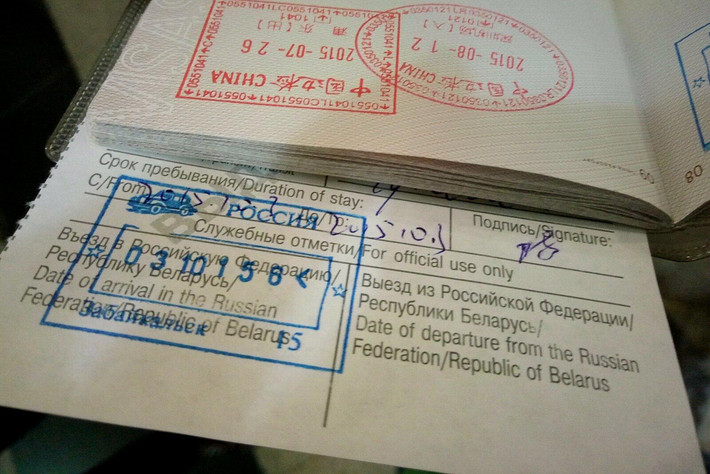 0551041LC0551041
2015 -07- 26
中国边检 CHINA
0350121LR0350121
深圳边防(入)
2015 -08- 12
中国边检 CHINA
60
08
Срок пребывания/Duration of stay:
С/From
2015.10.3
Подпись/Signature:
РОССИЯ
Служебные отметки/For official use only
Въезд в Российскую Федерацию/
Республику Беларусь/
Date of arrival in the Russian
Federation/Republic of Belarus
031015
Забайкальск 15
Выезд из Российской Федерации/
Республики Беларусь/
Date of departure from the Russian
Federation/Republic of Belarus